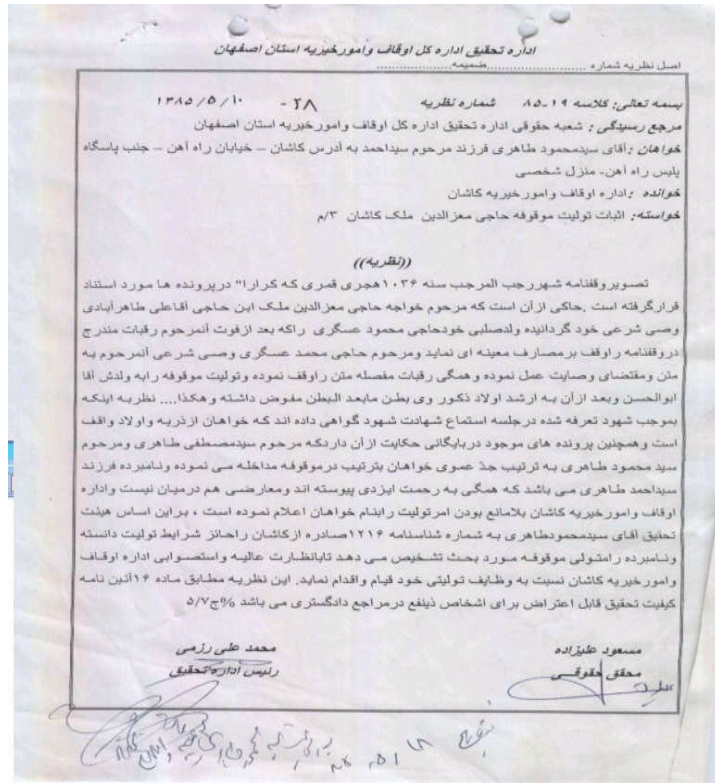 اداره تحقیق اداره کل اوقاف وامورخیریه استان اصفهان
اصل نظریه شماره ........................ضمیمه...................
بسمه تعالی: کلاسه ۱۹-۸۵ شماره نظریه ۲۸- ۱۳۸۵/۵/۱۰
مرجع رسیدگی : شعبه حقوقی اداره تحقیق اداره کل اوقاف وامورخیریه استان اصفهان
خواهان :آقای سیدمحمود طاهری فرزند مرحوم سیداحمد به آدرس کاشان – خیابان راه آهن – جنب پاسگاه
پلیس راه آهن- منزل شخصی
خوانده :اداره اوقاف وامورخیریه کاشان
خواسته: اثبات تولیت موقوفه حاجی معزالدین ملک کاشان ۳/م
((نظریه))
تصویروقفنامه شهررجب المرجب سنه ۱۰۳۶هجری قمری که کرارا" درپرونده ها مورد استناد
قرارگرفته است .حاکی ازآن است که مرحوم خواجه حاجی معزالدین ملک ابن حاجی آقاعلی طاهرآبادی
وصی شرعی خود گردانیده ولدصلبی خودحاجی محمود عسگری راکه بعد ازفوت آنمرحوم رقبات مندرج
دروقفنامه راوقف برمصارف معینه ای نماید ومرحوم حاجی محمد عسگری وصی شرعی آنمرحوم به
متن ومقتضای وصایت عمل نموده وهمگی رقبات مفصله متن راوقف نموده وتولیت موقوفه رابه ولدش آقا
ابوالحسن وبعد ازآن به ارشد اولاد ذکور وی بطن مابعد البطن مفوض داشته و هکذا.... نظربه اینکه
بموجب شهود تعرفه شده درجلسه استماع شهادت شهود گواهی داده اند که خواهان ازذریه واولاد واقف
است وهمچنین پرونده های موجود دربایگانی حکایت ازآن داردکه مرحوم سیدمصطفی طاهری ومرحوم
سید محمود طاهری به ترتیب جدّ عموی خواهان بترتیب درموقوفه مداخله می نموده ونامبرده فرزند
سیداحمد طاهری می باشد که همگی به رحمت ایزدی پیوسته اند ومعارضی هم درمیان نیست واداره
اوقاف وامورخیریه کاشان بلامانع بودن امرتولیت رابنام خواهان اعلام نموده است ، براین اساس هیئت
تحقیق آقای سیدمحمودطاهری به شماره شناسنامه ۱۲۱۶صادره ازکاشان راحائز شرایط تولیت دانسته
ونامبرده رامتولی موقوفه مورد بحث تشخیص می دهد تابانظارت عالیه واستصوابی اداره اوقاف
وامورخیریه کاشان نسبت به وظایف تولیتی خود قیام واقدام نماید. این نظریه مطابق ماده ۱۶آئین نامه
کیفیت تحقیق قابل اعتراض برای اشخاص ذینفع درمراجع دادگستری می باشد %ج۵/۷
مسعود علیزاده محمد علی رزمی
محقق حقوقی رئیس اداره تحقیق